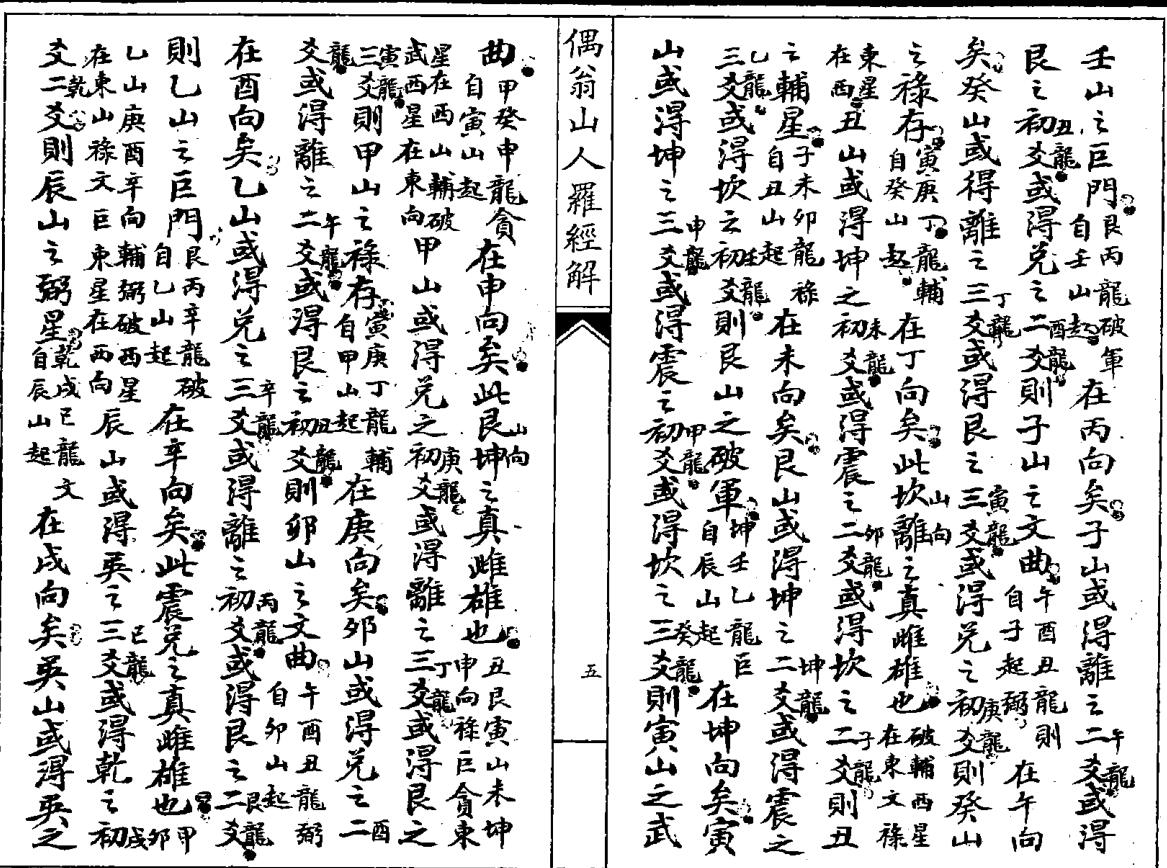 壬山之巨門艮丙龍破軍自壬山起在丙向矣子山或得離之二爻午龍或得
艮之初爻丑龍或得兌之二爻酉龍則子山之文曲午酉丑龍則自子起弼在午向
矣癸山或得離之三爻丁龍或得艮之三爻寅龍或得兌之初爻庚龍則癸山
之祿存寅庚丁龍輔自癸山起在丁向矣此坎離山向之真雌雄也破輔西星在東文祿
東星在西丑山或得坤之初爻未龍或得震之二爻卯龍或得坎之二爻子龍則丑
之輔星子未卯龍祿自丑山起在未向矣艮山或得坤之二爻坤龍或得震之
三爻乙龍或得坎之初爻壬龍則艮山之破軍坤壬乙龍巨自辰山起在坤向矣寅
山或得坤之三爻申龍或得震之初爻甲龍或得坎之三爻癸龍則寅山之武
偶翁山人羅經解
五
曲甲癸申龍貪自寅山起在申向矣此艮坤山向之真雌雄也丑艮寅山未坤申向祿巨貪東
星在西山輔破武西星在東向甲山或得兌之初爻庚龍或得離之三爻丁龍或得艮之
三爻寅龍則甲山之祿存寅庚丁龍輔自甲山起在庚向矣卯山或得兌之二酉
爻龍或得離之二爻午龍或得艮之初爻丑龍則卯山之文曲午酉丑龍弼自卯山起
在酉向矣乙山或得兌之三爻辛龍或得離之初爻丙龍或得艮之二爻艮龍
則乙山之巨門艮丙辛龍破自乙山起在辛向矣此震兌之真雌雄也甲卯
乙山庚酉辛向輔弼破西星在東山祿文巨東星在西向辰山或得巽之三爻巳龍或得乾之初戌
爻乾二爻則辰山之弼星乾戌巳龍文自辰山起在戌向矣巽山或得巽之